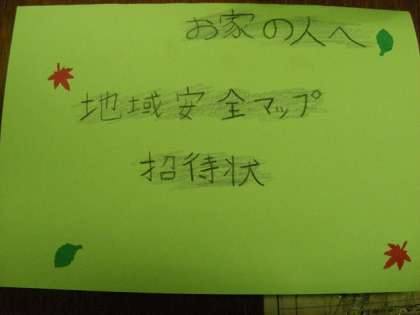 お家の人へ
地域安全マップ
招待状